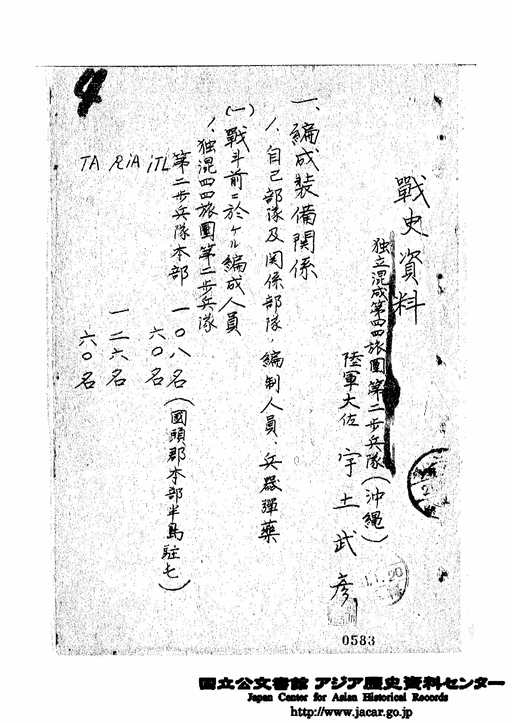 4
戰史資料
独立混成第四四旅團第二歩兵隊(沖縄)
陸軍大佐 宇土武彦
一、編成装備関係
1、自己部隊及関係部隊ノ編制人員、兵器彈藥
(一)戰斗前ニ於ケル編成人員
1、独混四四旅團第二歩兵隊
第二歩兵隊本部 一〇八名(國頭郡本部半島駐屯)
iTL 六〇名
RiA 一二六名
TA 六〇名
1.1.20
0583
国立公文書館 アジア歴史資料センター
Japan Center for Asian Historical Records
http://www.jacar.go.jp